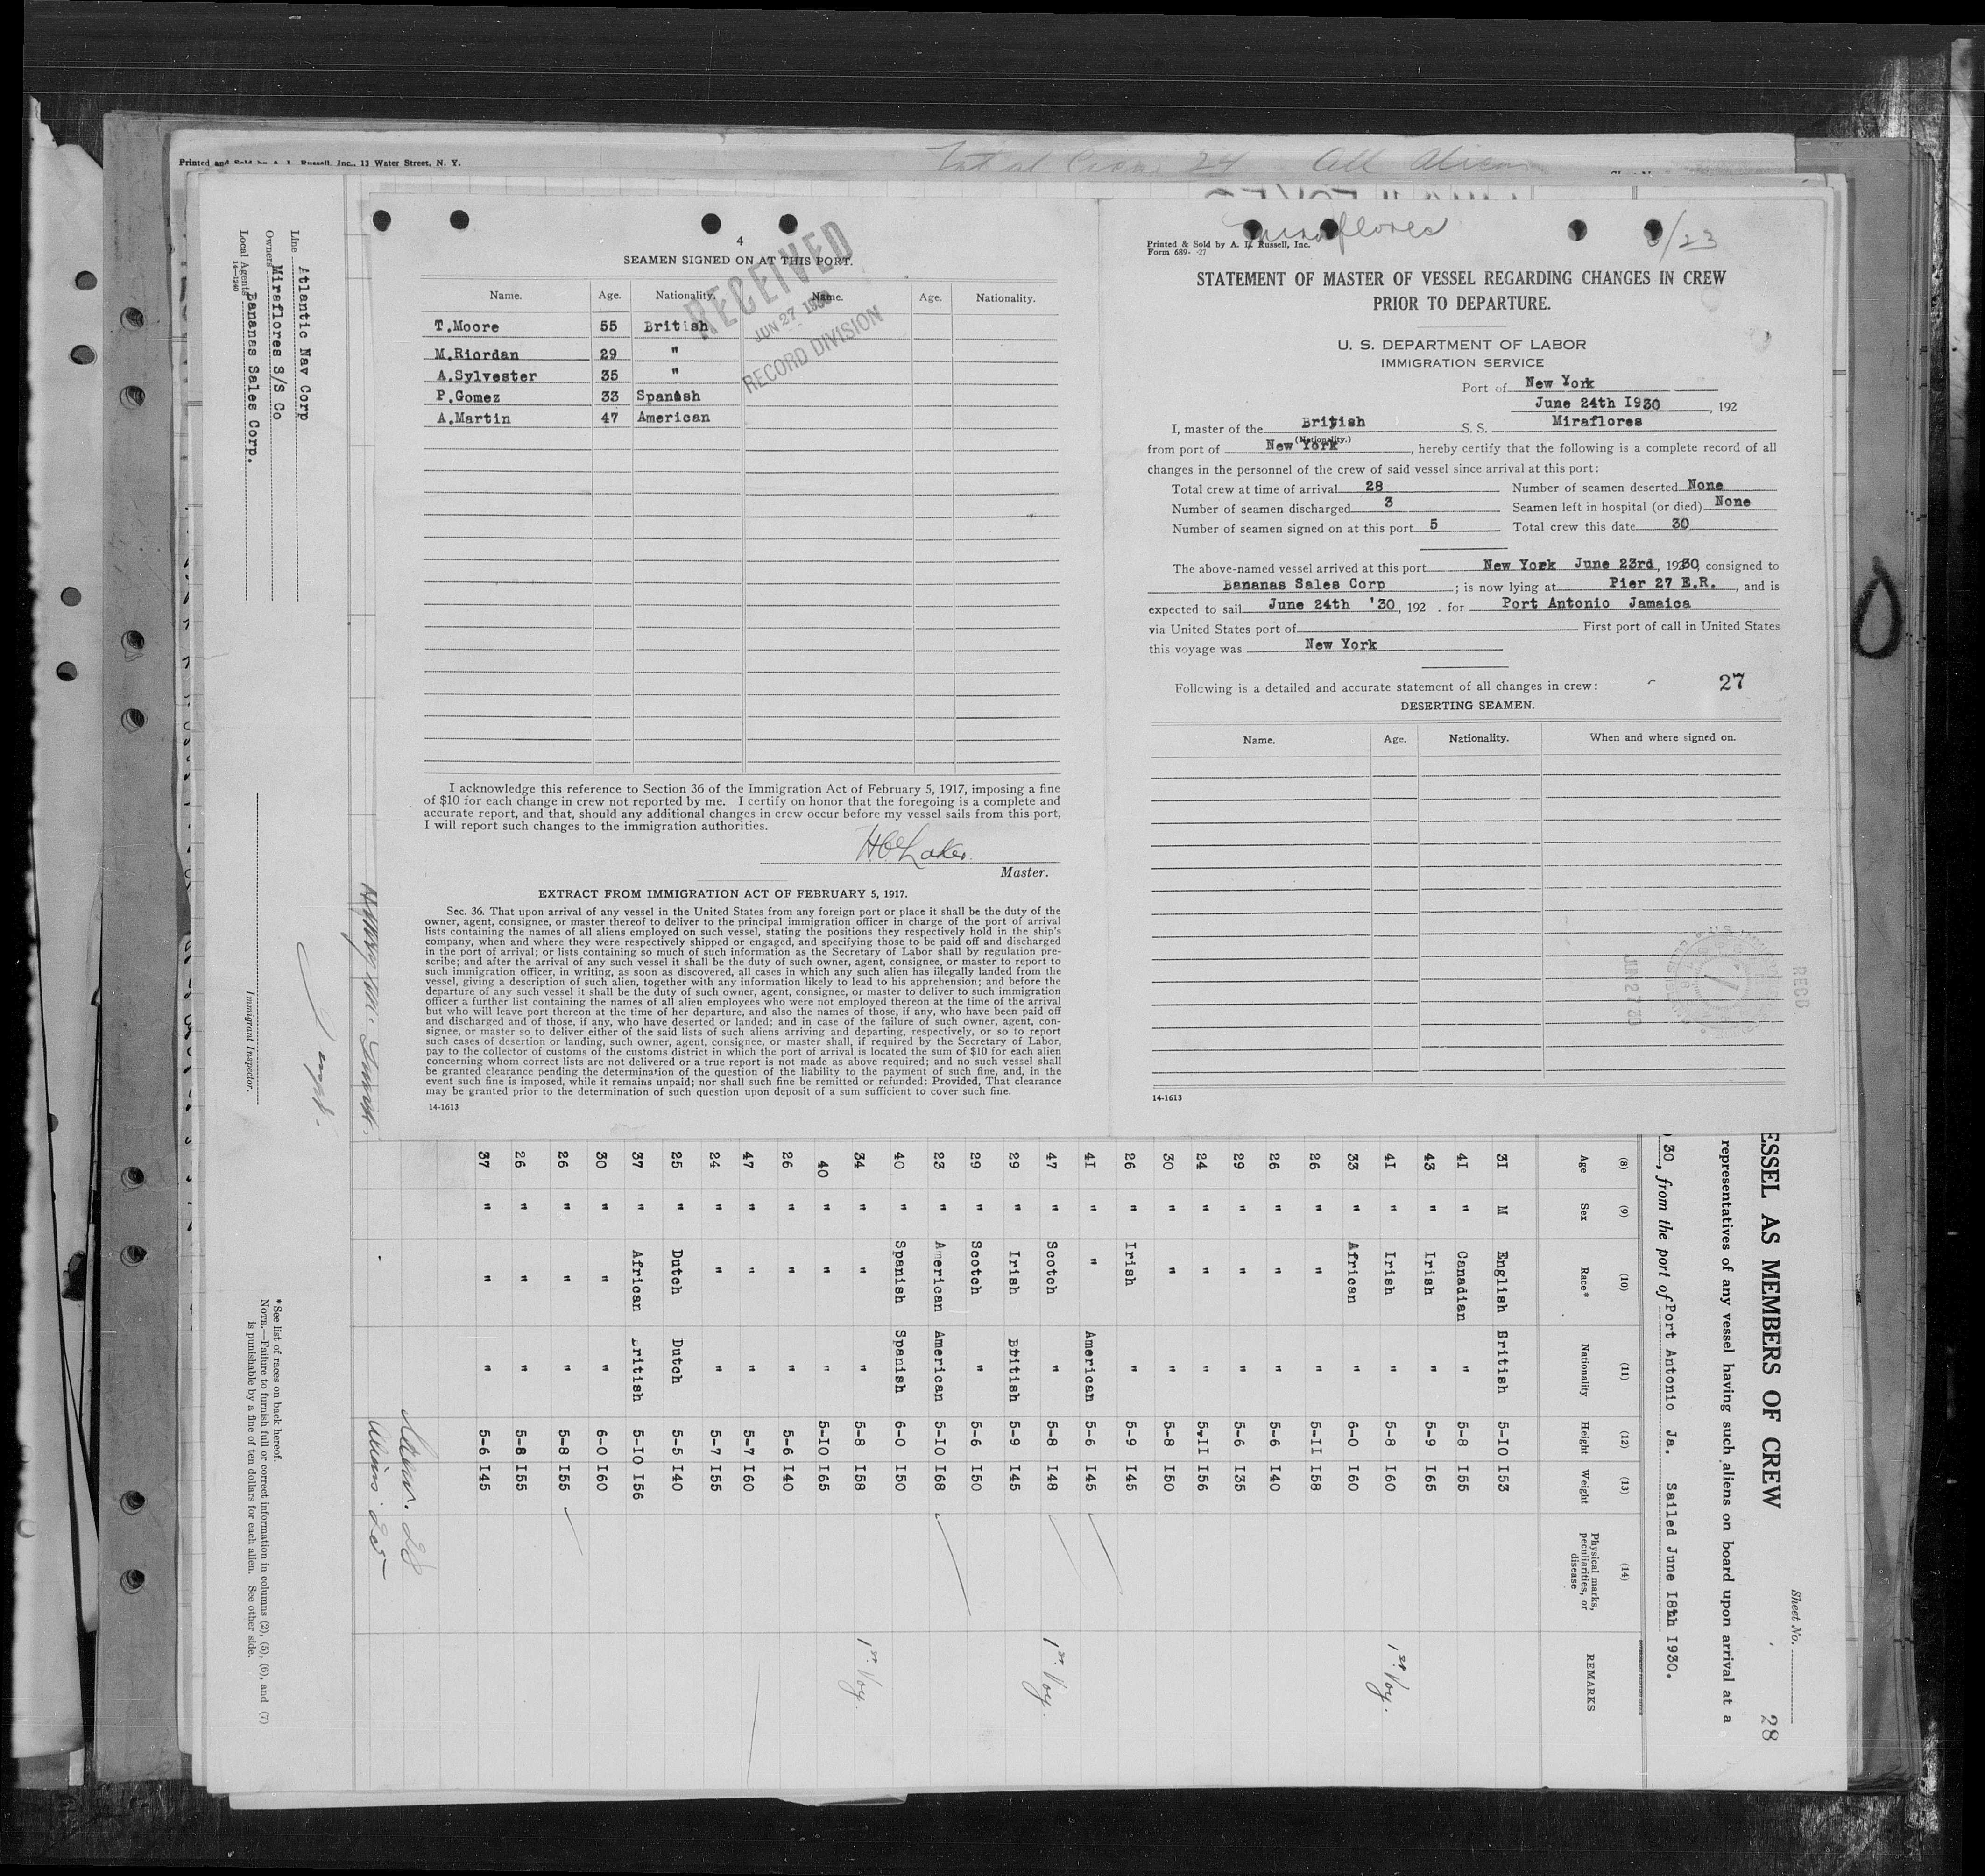 Printed and Sold by A. L. Russell, Inc., 13 Water Street, N. Y.
Total Crew 24 All Aliens
4
SEAMEN SIGNED ON AT THIS PORT.
RECEIVED
JUN 27 1930
RECORD DIVISION
Name. Age. Nationality. Name. Age. Nationality.
T.Moore 55 British
M.Riordan 29 "
A.Sylvester 35 "
P.Gomez 33 Spanish
A.Martin 47 American
I acknowledge this reference to Section 36 of the Immigration Act of February 5, 1917, imposing a fine
of $10 for each change in crew not reported by me. I certify on honor that the foregoing is a complete and
accurate report, and that, should any additional changes in crew occur before my vessel sails from this port,
I will report such changes to the immigration authorities.
Master.
EXTRACT FROM IMMIGRATION ACT OF FEBRUARY 5, 1917.
Sec. 36. That upon arrival of any vessel in the United States from any foreign port or place it shall be the duty of the
owner, agent, consignee, or master thereof to deliver to the principal immigration officer in charge of the port of arrival
lists containing the names of all aliens employed on such vessel, stating the positions they respectively hold in the ship's
company, when and where they were respectively shipped or engaged, and specifying those to be paid off and discharged
in the port of arrival; or lists containing so much of such information as the Secretary of Labor shall by regulation pre-
scribe; and after the arrival of any such vessel it shall be the duty of such owner, agent, consignee, or master to report to
such immigration officer, in writing, as soon as discovered, all cases in which any such alien has illegally landed from the
vessel, giving a description of such alien, together with any information likely to lead to his apprehension; and before the
departure of any such vessel it shall be the duty of such owner, agent, consignee, or master to deliver to such immigration
officer a further list containing the names of all alien employees who were not employed thereon at the time of the arrival
but who will leave port thereon at the time of her departure, and also the names of those, if any, who have been paid off
and discharged and of those, if any, who have deserted or landed; and in case of the failure of such owner, agent, con-
signee, or master so to deliver either of the said lists of such aliens arriving and departing, respectively, or so to report
such cases of desertion or landing, such owner, agent, consignee, or master shall, if required by the Secretary of Labor,
pay to the collector of customs of the customs district in which the port of arrival is located the sum of $10 for each alien
concerning whom correct lists are not delivered or a true report is not made as above required; and no such vessel shall
be granted clearance pending the determination of the question of the liability to the payment of such fine, and, in the
event such fine is imposed, while it remains unpaid; nor shall such fine be remitted or refunded: Provided, That clearance
may be granted prior to the determination of such question upon deposit of a sum sufficient to cover such fine.
14-1613
Miraflores 6/23
Printed & Sold by A. L. Russell, Inc.
Form 689- -27
STATEMENT OF MASTER OF VESSEL REGARDING CHANGES IN CREW
PRIOR TO DEPARTURE.
U. S. DEPARTMENT OF LABOR
IMMIGRATION SERVICE
Port of New York
June 24th I930, 192
I, master of the British S. S. Miraflores
(Nationality.)
from port of New York, hereby certify that the following is a complete record of all
changes in the personnel of the crew of said vessel since arrival at this port:
Total crew at time of arrival 28 Number of seamen deserted None
Number of seamen discharged 3 Seamen left in hospital (or died) None
Number of seamen signed on at this port 5 Total crew this date 30
The above-named vessel arrived at this port New York June 23rd, 1930, consigned to
Bananas Sales Corp; is now lying at Pier 27 E.R., and is
expected to sail June 24th '30, 192 . for Port Antonio Jamaica
via United States port of First port of call in United States
this voyage was New York
Following is a detailed and accurate statement of all changes in crew: 27
DESERTING SEAMEN.
Name. Age. Nationality. When and where signed on.
RECD
JUN 27 30
14-1613
Line Atlantic Nav Corp
Owners Miraflores S/S Co
Local Agents Bananas Sales Corp.
14-1240
Immigrant Inspector.
Sheet No.
28
ESSEL AS MEMBERS OF CREW
representatives of any vessel having such aliens on board upon arrival at a
30, from the port of Port Antonio Ja. Sailed June I8th I930.
(8) (9) (10) (11) (12) (13) (14)
Age Sex Race* Nationality Height Weight Physical marks, peculiarities, or disease REMARKS
3I M English British 5-IO I53
4I " Canadian " 5-8 I55
43 " Irish " 5-9 I65
4I " Irish " 5-8 I60 1st Voy.
33 " African " 6-0 I60
26 " " " 5-II I58
26 " " " 5-6 I40
29 " " " 5-6 I35
24 " " " 5-II I56
30 " " " 5-8 I50
26 " Irish " 5-9 I45
4I " " American 5-6 I45
47 " Scotch " 5-8 I48 1st Voy.
29 " Irish British 5-9 I45
29 " Scotch " 5-6 I50
23 " American American 5-IO I68
40 " Spanish Spanish 6-0 I50
34 " " " 5-8 I58 1st Voy.
40 " " " 5-IO I65
26 " " " 5-6 I40
47 " " " 5-7 I60
24 " " " 5-7 I55
25 " Dutch Dutch 5-5 I40
37 " African British 5-IO I56
30 " " " 6-0 I60
26 " " " 5-8 I55
26 " " " 5-8 I55
37 " " " 5-6 I45
*See list of races on back hereof.
NOTE.—Failure to furnish full or correct information in columns (2), (5), (6), and (7)
is punishable by a fine of ten dollars for each alien. See other side.